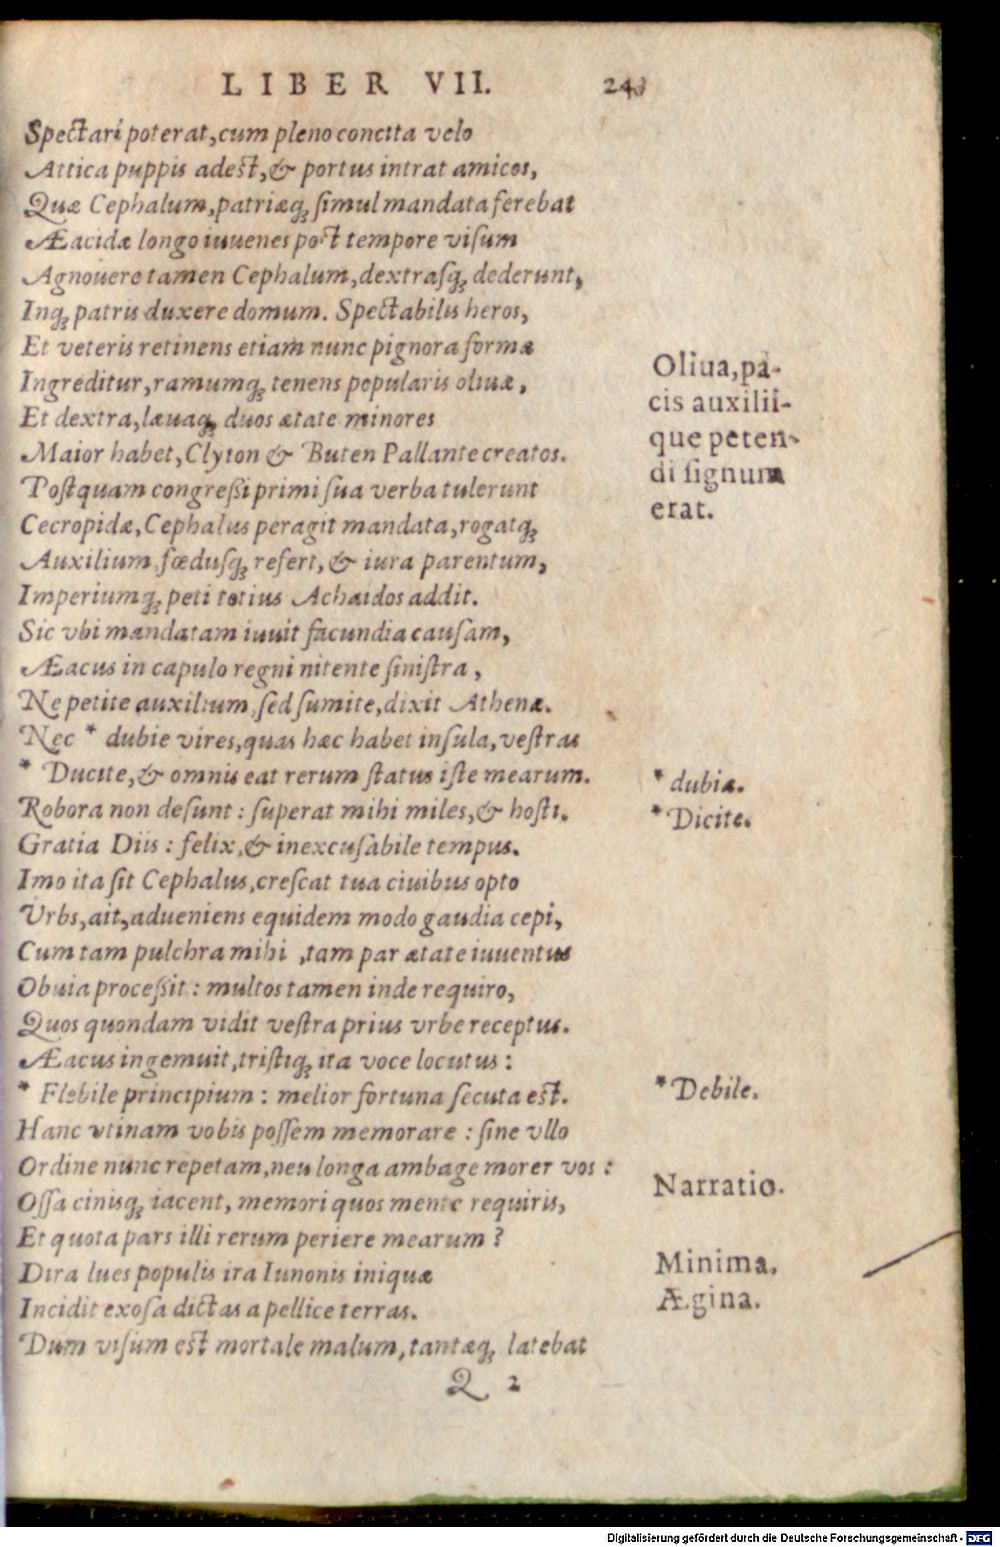 LIBER VII. 243
Spectari poterat, cum pleno concita velo
Attica puppis adest, & portus intrat amicos,
Quæ Cephalum, patriæq; simul mandata ferebat
Æacidæ longo iuuenes post tempore visum
Agnouere tamen Cephalum, dextrasq; dederunt,
Inq; patris duxere domum. Spectabilis heros,
Et veteris retinens etiam nunc pignora formæ
Ingreditur, ramumq; tenens popularis oliuæ,
Et dextra, læuaq; duos ætate minores
Maior habet, Clyton & Buten Pallante creatos.
Postquam congressi primi sua verba tulerunt
Cecropidæ, Cephalus peragit mandata, rogatq;
Auxilium, fœdusq; refert, & iura parentum,
Imperiumq; peti totius Achaidos addit.
Sic vbi mandatam iuuit facundia causam,
Æacus in capulo regni nitente sinistra,
Ne petite auxilium, sed sumite, dixit Athenæ.
Nec * dubie vires, quas hæc habet insula, vestras
* Ducite, & omnis eat rerum status iste mearum.
Robora non desunt: superat mihi miles, & hosti.
Gratia Diis: felix, & inexcusabile tempus.
Imo ita sit Cephalus, crescat tua ciuibus opto
Vrbs, ait, adueniens equidem modo gaudia cepi,
Cum tam pulchra mihi, tam par ætate iuuentus
Obuia processit: multos tamen inde requiro,
Quos quondam vidit vestra prius vrbe receptus.
Æacus ingemuit, tristiq; ita voce locutus:
* Flebile principium: melior fortuna secuta est.
Hanc vtinam vobis possem memorare: sine vllo
Ordine nunc repetam, neu longa ambage morer vos:
Ossa cinisq; iacent, memori quos mente requiris,
Et quota pars illi rerum periere mearum?
Dira lues populis ira Iunonis iniquæ
Incidit exosa dictas a pellice terras.
Dum visum est mortale malum, tantæq; latebat
Q 2
Oliua, pa-
cis auxilii-
que peten-
di signum
erat.
* dubiæ.
* Dicite.
* Debile.
Narratio.
Minima.
Ægina.
Digitalisierung gefördert durch die Deutsche Forschungsgemeinschaft - DFG